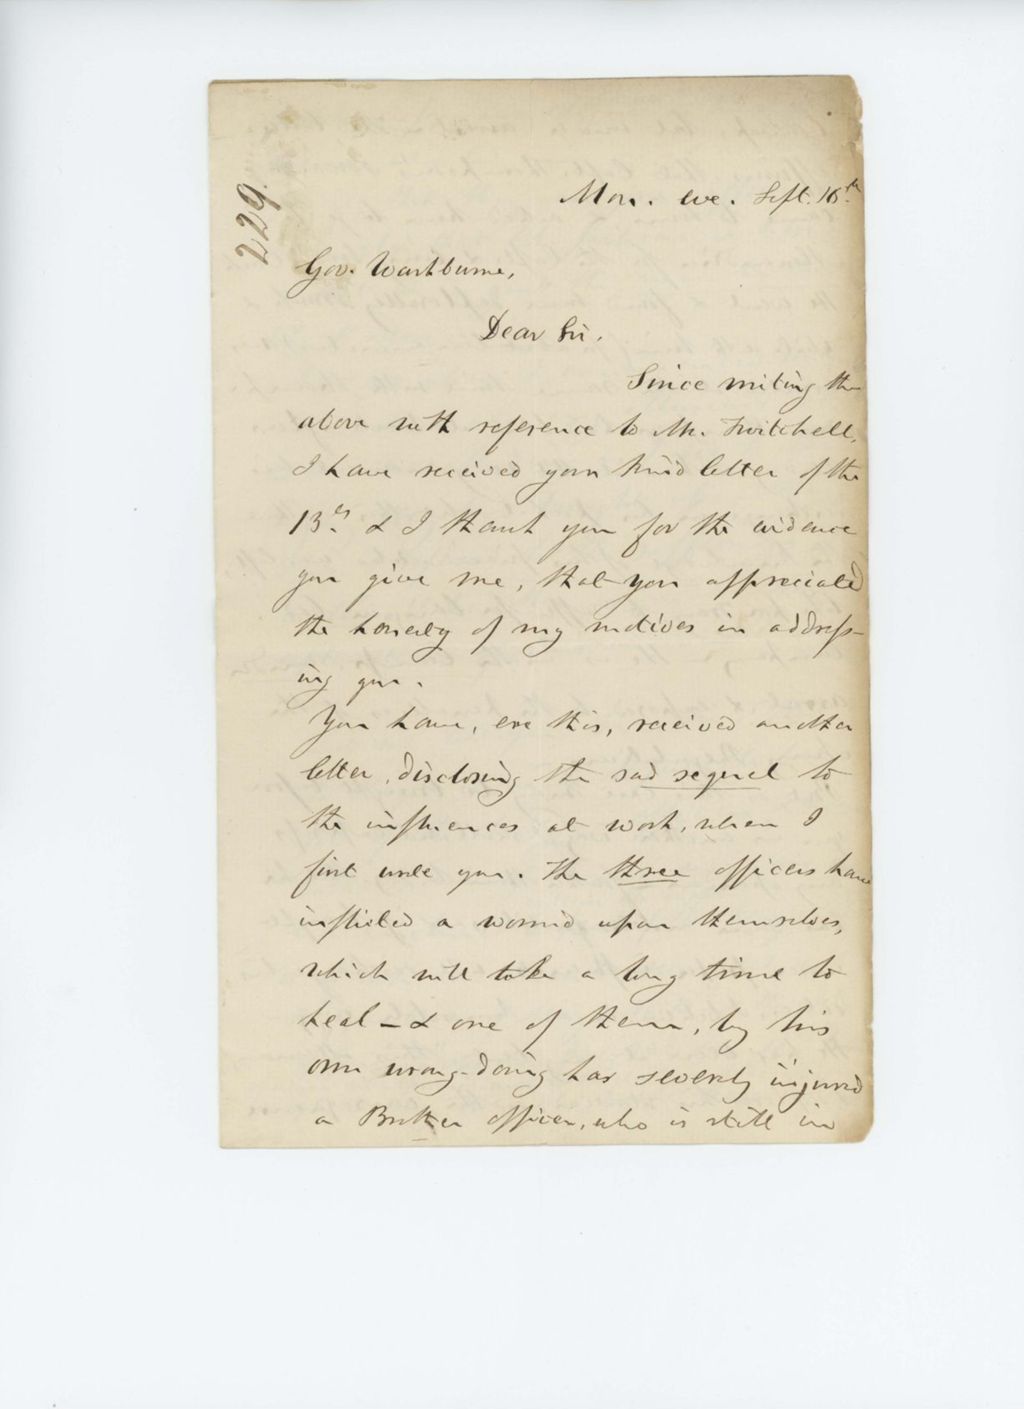 229.
Mon. eve. Sept. 16th
Gov. Washburne,
Dear Sir.
Since writing the
above with reference to Mr. Twitchell,
I have received your kind letter of the
13th & I thank you for the evidence
you give me, that you appreciated
the honesty of my motives in address-
ing you.
You have, ere this, received another
letter, disclosing the sad sequel to
the influences at work, when I
first wrote you. The three officers have
inflicted a wound upon themselves,
which will take a long time to
heal – & one of them, by his
own wrong-doing has severely injured
a Brother officer, who is still in